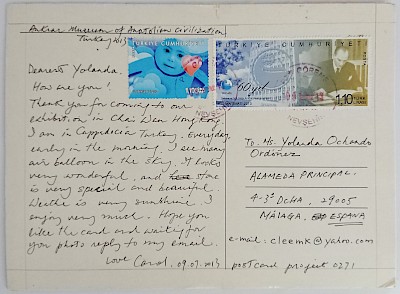 Ankara Museum of Anatolian Civilization
Turkey 2013
Dearest Yolanda.
How are you!
Thank you for coming to our
exhibition in Chai Wan Hong Kong.
I am in Cappadicia Turkey. Everyday
early in the morning. I see many
air balloon in the sky. It looks
very wonderful. and stone
is very special and beautiful.
Weathe is very sunshine. I
enjoy very much. Hope you
like the card and waiting for
your photo reply to my email.
Love Carol. 09.07.2013
TÜRKİYE CUMHURİYETİ
TÜRKİYE CUMHURİYETİ
60.yıl
1.10
To: Ms. Yolanda Ochando
Ordiñez
ALAMEDA PRINCIPAL.
4-3° DCHA, 29005
MÁLAGA. ESPAÑA
e-mail: cleemk@yahoo.com
postcard project 0271